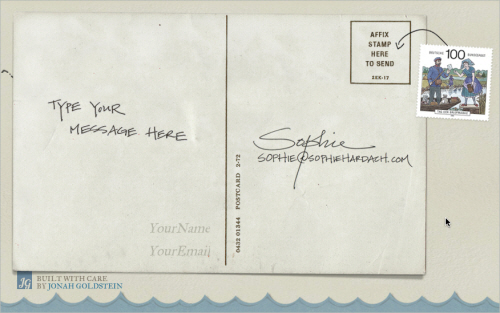 AFFIX
STAMP
HERE
TO SEND
XXX-17
100
TYPE YOUR
MESSAGE HERE
Sophie
SOPHIE@SOPHIEHARDACH.COM
0432 01344 POSTCARD 2-72
YourName
YourEmail
JG
BUILT WITH CARE
BY JONAH GOLDSTEIN